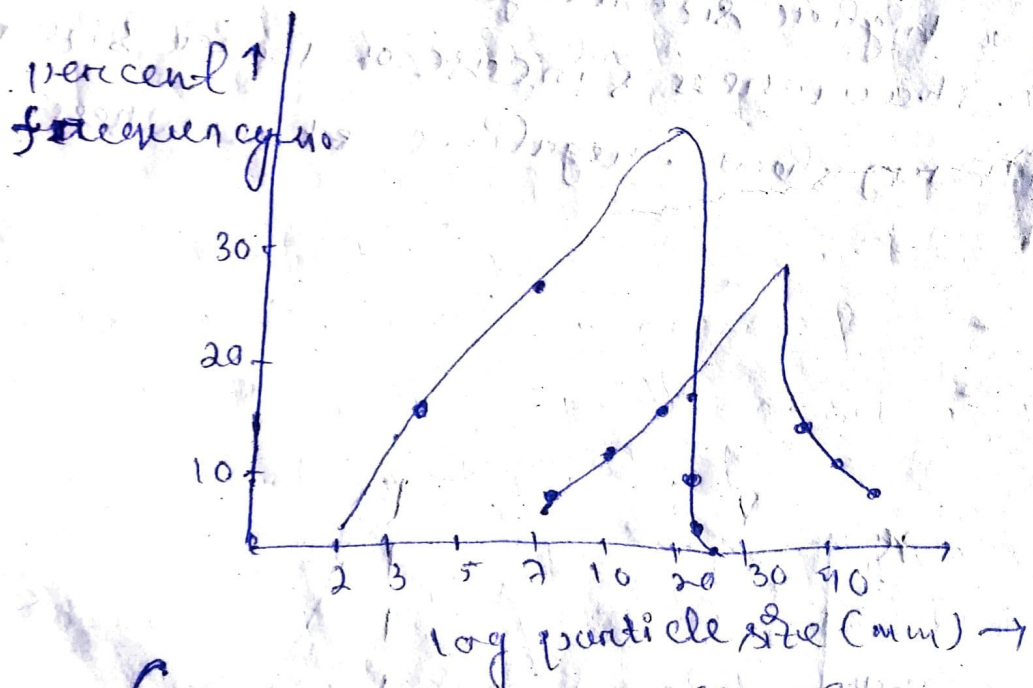 percent ↑
frequency 40
30
20
10
0
2 3 5 7 10 20 30 40
log particle size (mm) →